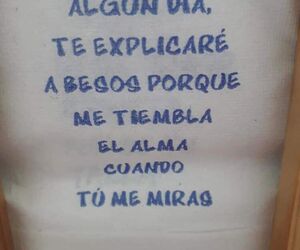 ALGÚN DÍA,
TE EXPLICARÉ
A BESOS PORQUE
ME TIEMBLA
EL ALMA
CUANDO
TÚ ME MIRAS